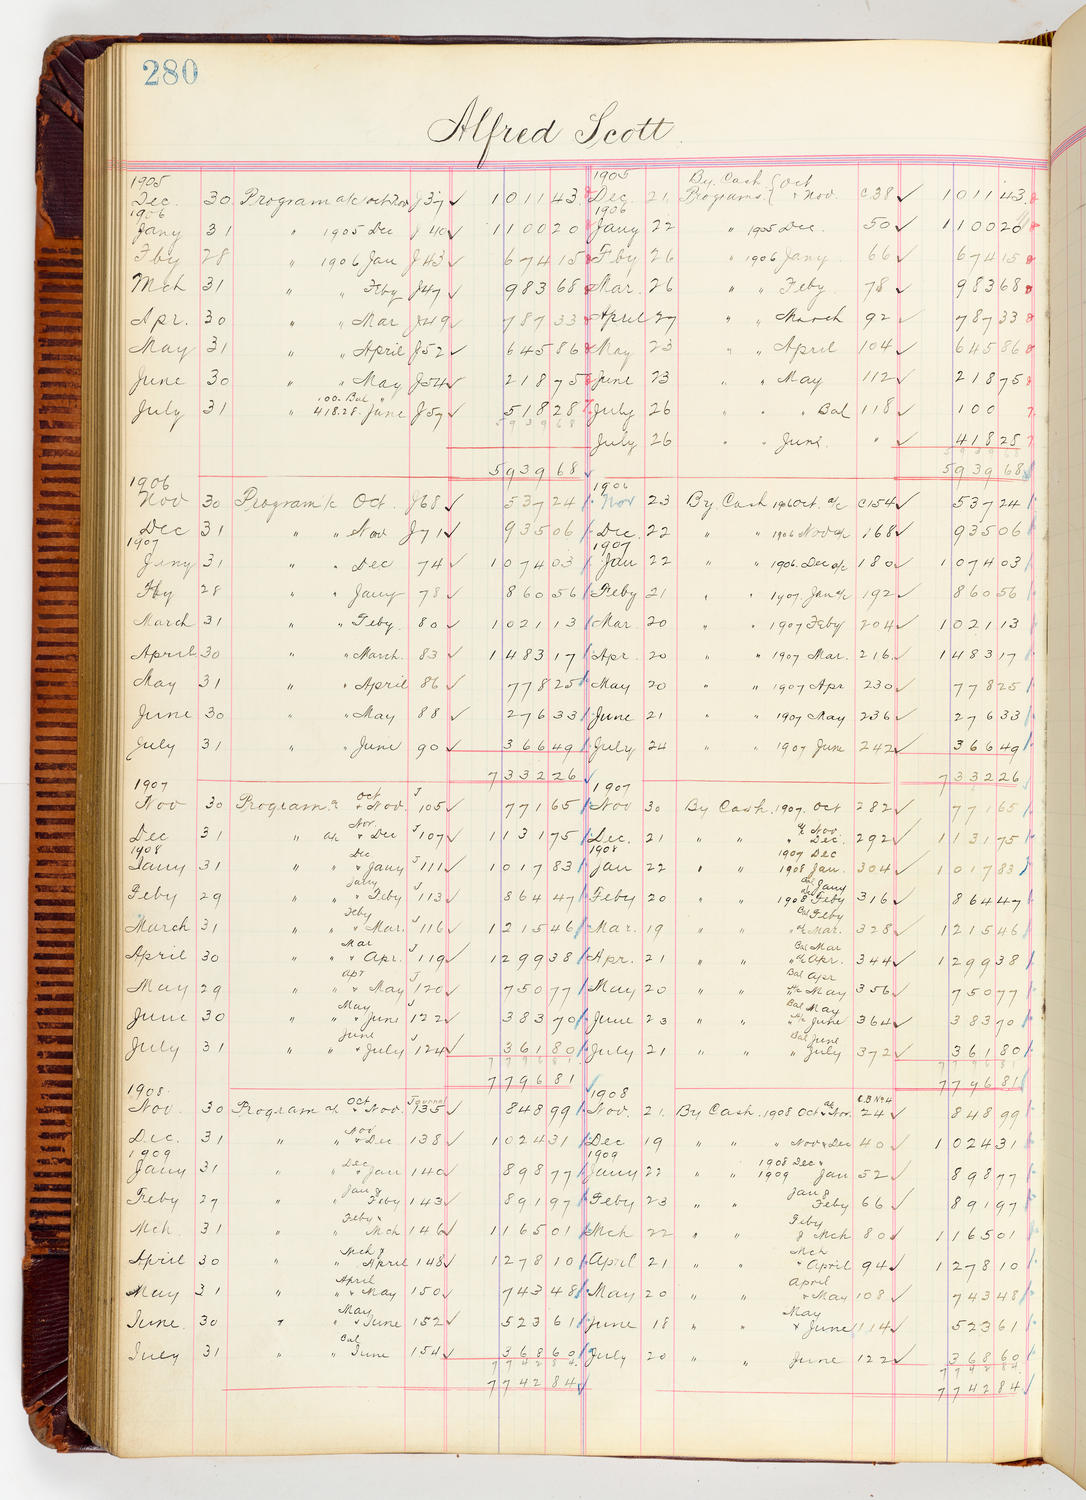 280
Alfred Scott.
1905 1905 By Cash { Oct
Dec. 30 Program a/c Oct & Nov J37 ✓ 1011 43 Dec. 21 Programs { & Nov. C38 ✓ 1011 43
1906 1906
Jany 31 " 1905 Dec J40 ✓ 1100 20 Jany 22 " 1905 Dec. 50 ✓ 1100 20
Fby 28 " 1906 Jan J43 ✓ 674 15 Fby 26 " 1906 Jany. 66 ✓ 674 15
Mch 31 " " Feby J47 ✓ 983 68 Mar. 26 " " Feby. 78 ✓ 983 68
Apr. 30 " " Mar J49 ✓ 787 33 April 27 " " March 92 ✓ 787 33
May 31 " " April J52 ✓ 645 86 May 23 " " April 104 ✓ 645 86
June 30 " " May J54 ✓ 218 75 June 23 " " May 112 ✓ 218 75
100. Bal "
July 31 " 418.28 June J57 ✓ 518 28 July 26 " " " Bal 118 ✓ 100
5939 68
July 26 " " June " ✓ 418 28
5939 68
5939 68 ✓ 5939 68 ✓
1906 1906
Nov 30 Program a/c Oct. J68 ✓ 537 24 Nov 23 By Cash 1906 Oct. a/c C154 ✓ 537 24
Dec 31 " " Nov J71 ✓ 935 06 Dec. 22 " " 1906 Nov a/c 168 ✓ 935 06
1907 1907
Jany 31 " " Dec 74 ✓ 1074 03 Jan 22 " " 1906. Dec a/c 180 ✓ 1074 03
Fby 28 " " Jany 78 ✓ 860 56 Feby 21 " " 1907. Jan a/c 192 ✓ 860 56
March 31 " " Feby. 80 ✓ 1021 13 Mar. 20 " " 1907 Feby 204 ✓ 1021 13
April 30 " " March. 83 ✓ 1483 17 Apr. 20 " " 1907 Mar. 216 ✓ 1483 17
May 31 " " April 86 ✓ 778 25 May 20 " " 1907 Apr 230 ✓ 778 25
June 30 " " May 88 ✓ 276 33 June 21 " " 1907 May 236 ✓ 276 33
July 31 " " June 90 ✓ 366 49 July 24 " " 1907 June 242 ✓ 366 49
7332 26 ✓ 7332 26
1907 1907
Nov 30 Program a/c Oct & Nov. J105 ✓ 771 65 Nov 30 By Cash. 1907. Oct 282 ✓ 771 65
Dec 31 " a/c Nov. & Dec J107 ✓ 1131 75 Dec. 21 " " a/c Nov " Dec. 292 ✓ 1131 75
1908 1908 1907 Dec
Jany 31 " " Dec & Jany J111 ✓ 1017 83 Jan 22 " " 1908 Jan. 304 ✓ 1017 83
Feby 29 " " Jany & Feby J113 ✓ 864 47 Feby 20 " " Bal Jany 1908 Feby 316 ✓ 864 47
March 31 " " Feby & Mar. J116 ✓ 1215 46 Mar. 19 " " Bal Feby " a/c Mar. 328 ✓ 1215 46
April 30 " " Mar & Apr. J119 ✓ 1299 38 Apr. 21 " " Bal Mar " a/c Apr. 344 ✓ 1299 38
May 29 " " Apr & May J120 ✓ 750 77 May 20 " " Bal Apr a/c May 356 ✓ 750 77
June 30 " " May & June J122 ✓ 383 70 June 23 " " Bal May a/c June 364 ✓ 383 70
July 31 " " June & July J124 ✓ 361 80 July 21 " " Bal June " July 372 ✓ 361 80
7796 81 7796 81
7796 81 ✓ 7796 81
1908. 1908
Nov. 30 Program a/c Oct & Nov. Journal 135 ✓ 848 99 Nov. 21. By Cash 1908 Oct a/c & Nov. C.B. No 4 24 ✓ 848 99
Dec. 31 " " Nov & Dec 138 ✓ 1024 31 Dec 19 " " " Nov & Dec 40 ✓ 1024 31
1909 1909 1908 Dec &
Jany 31 " " Dec & Jan 140 ✓ 898 77 Jany 22 " " 1909 Jan 52 ✓ 898 77
Feby 27 " " Jan & Feby 143 ✓ 891 97 Feby 23 " " Jan & Feby 66 ✓ 891 97
Mch 31 " " Feby & Mch 146 ✓ 1165 01 Mch 22 " " Feby & Mch 80 ✓ 1165 01
April 30 " " Mch & April 148 ✓ 1278 10 April 21 " " Mch & April 94 ✓ 1278 10
May 31 " " April & May 150 ✓ 743 48 May 20 " " April & May 108 ✓ 743 48
June. 30 " " May & June 152 ✓ 523 61 June 18 " " May & June 114 ✓ 523 61
July 31 " " Bal June 154 ✓ 368 60 July 20 " " June 122 ✓ 368 60
7742 84 7742 84
7742 84 ✓ 7742 84 ✓